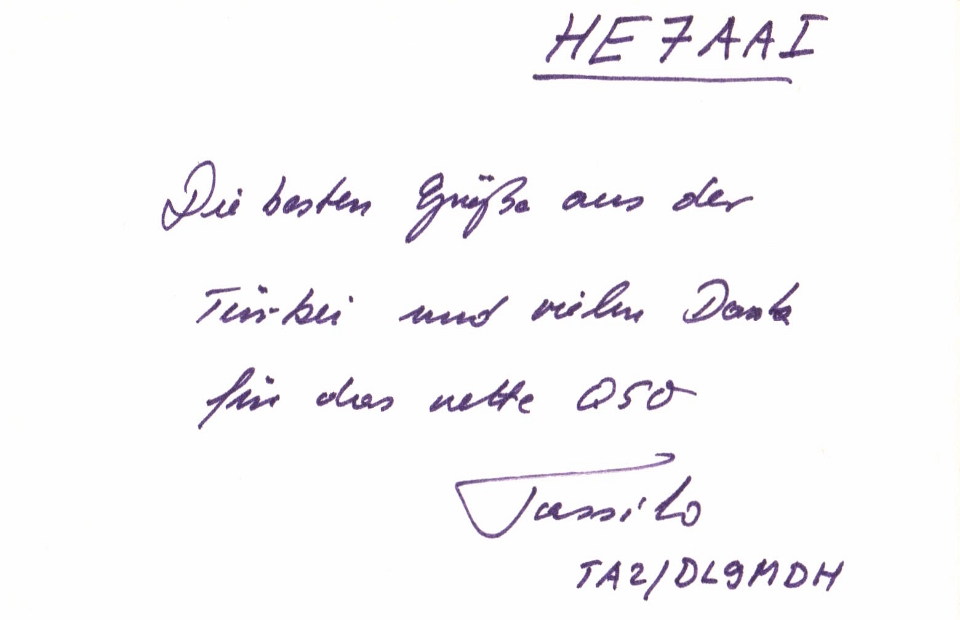 HE7AAI
Die besten Grüße aus der
Türkei und vielen Dank
für das nette QSO
Tassilo
TA2/DL9MDH